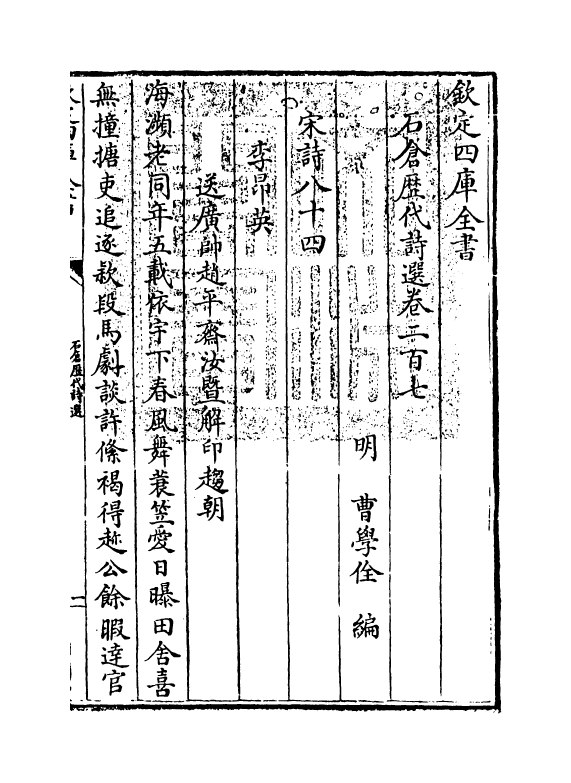 欽定四庫全書
石倉歷代詩選卷二百七
明 曹學佺 編
宋詩八十四
李昂英
送廣帥趙平齋汝暨解印趨朝
海瀕老同年五載依宇下春風舞蓑笠愛日曝田舍喜
無撞搪吏追逐款段馬劇談許絛褐得趂公餘暇達官
石倉歷代詩選